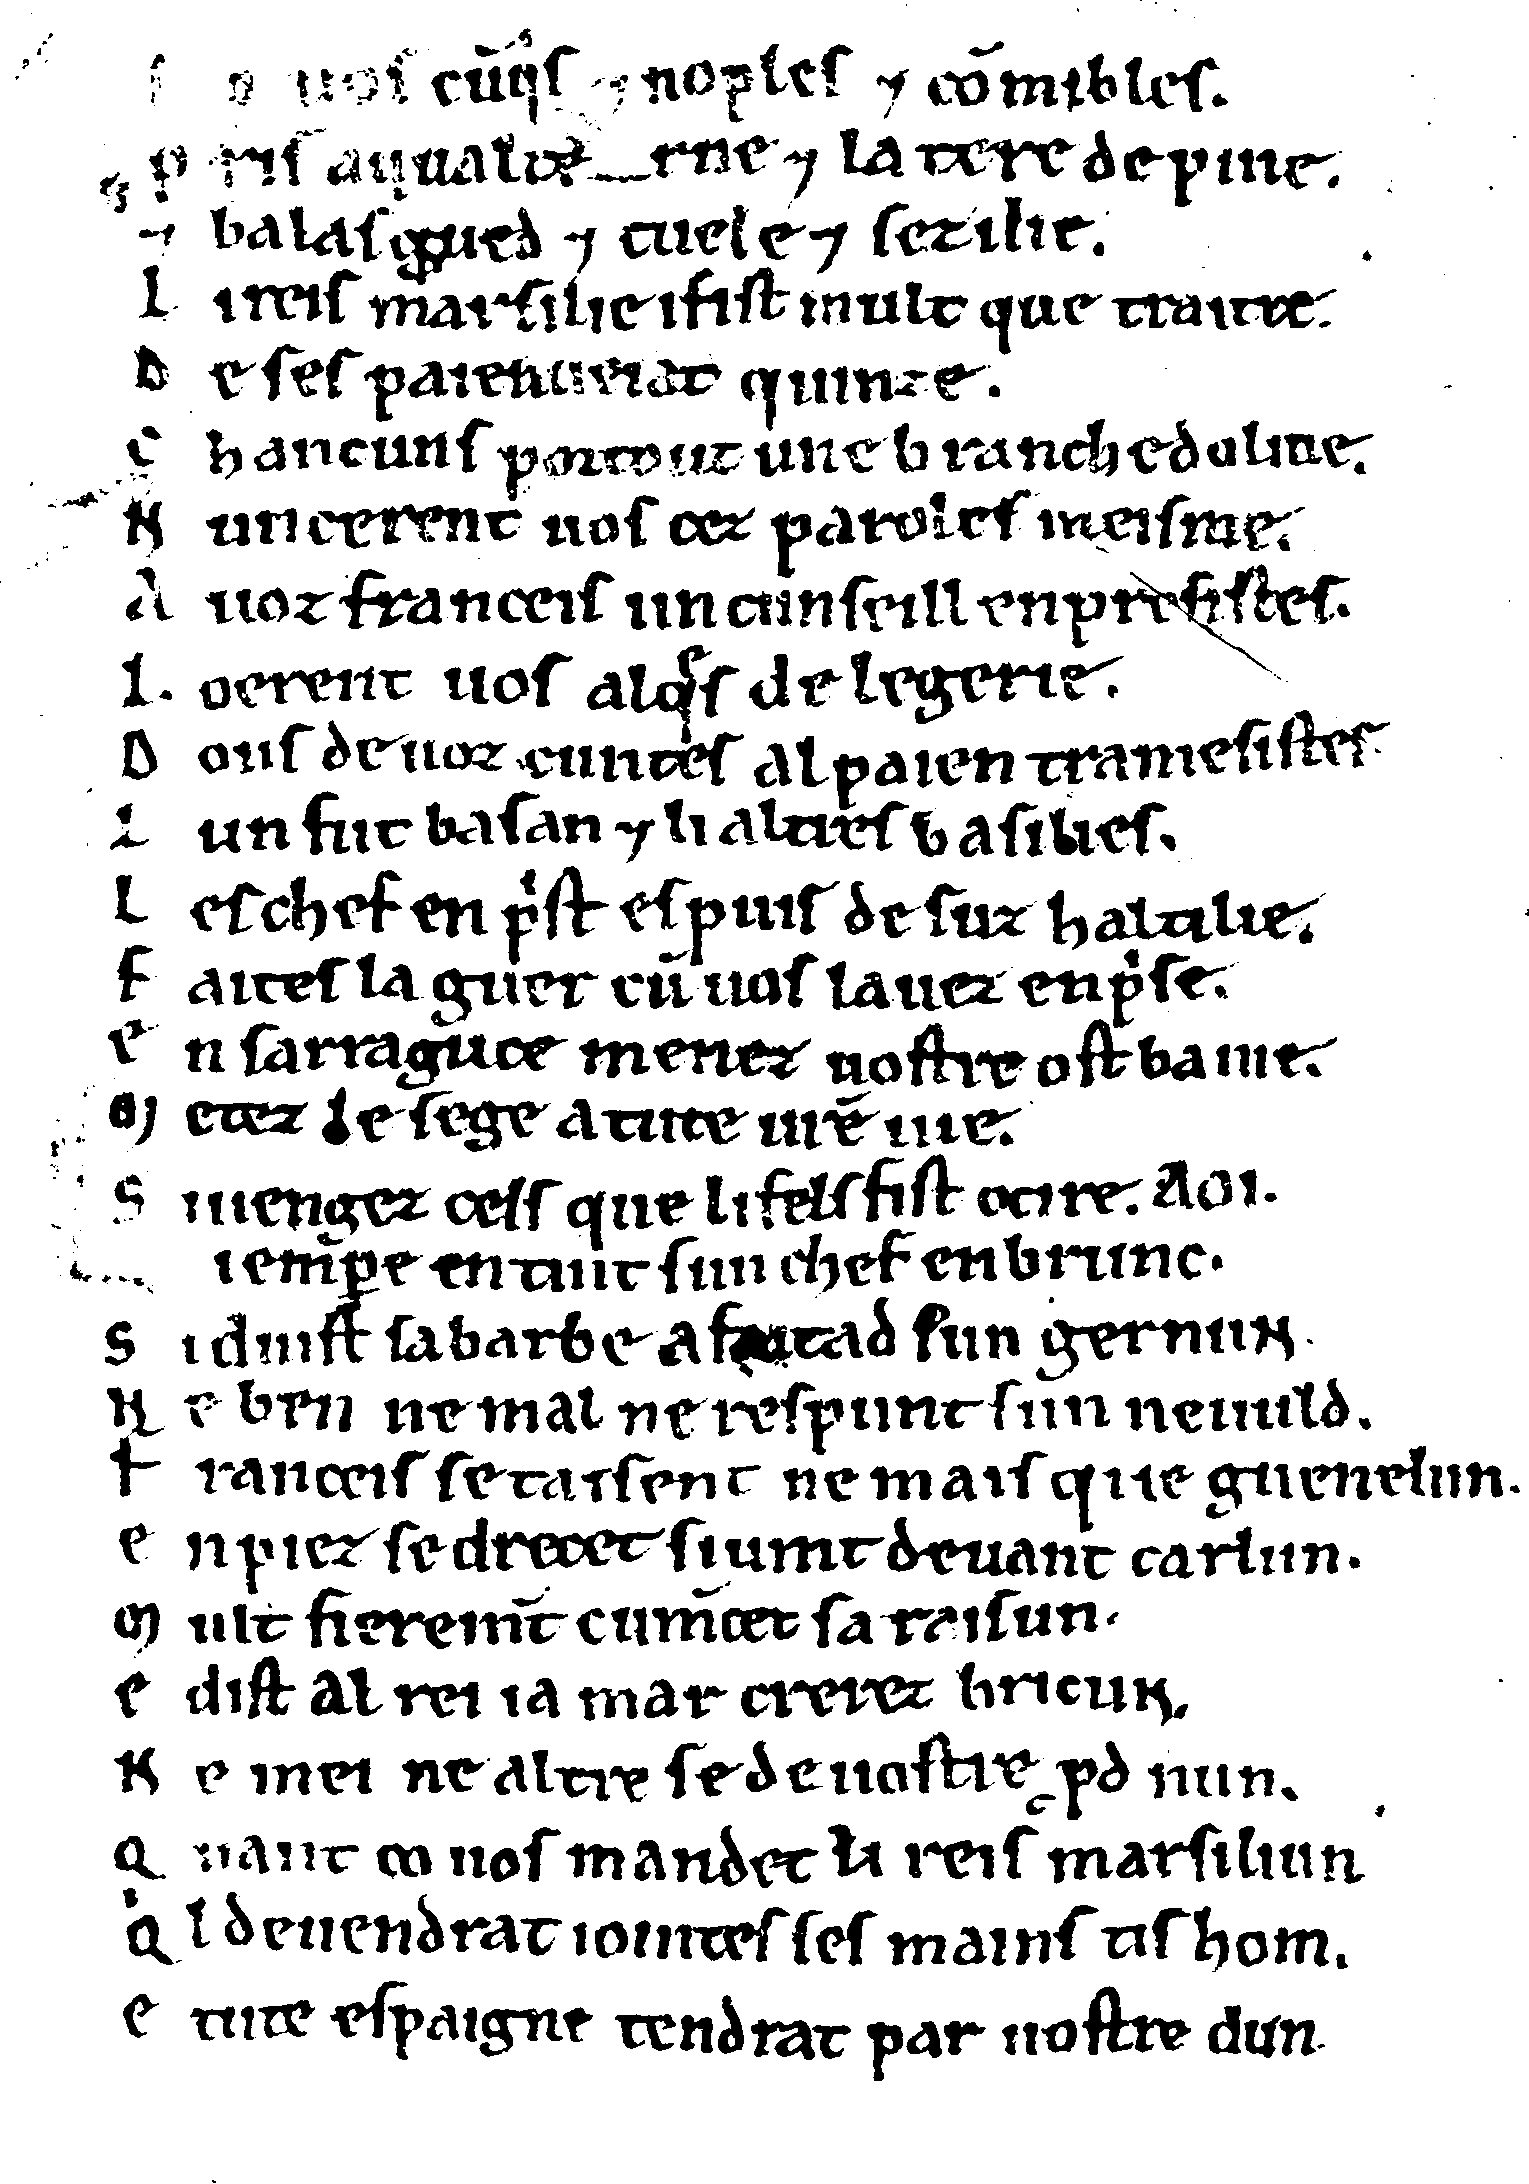 I o uos cūq̉s ⁊ noples ⁊ cōmibles.
P ris ad ualt̾ ne ⁊ la tere de pine.
⁊ balasgued ⁊ tuele ⁊ sezilie.
L ireis marsilie ifist mult que traitre.
D e ses paien ueiat quinze.
C hancuns portout une branche doliue.
N uncerent uos cez paroles meisme.
A uoz franceis un cunseill en presistes.
L oerent uos alq̉s de legerie.
D ous de uoz cuntes al paien tramesistes
L un fut basan ⁊ li altres basilies.
L es chef en p̍st es puis desuz haltilie.
F aites la guer cū uos lauez enp̍se.
E n sarraguce menez uostre ost banie.
M etez le sege a tute urē uie.
S i uengez cels que li fels fist ocire. AOI.
iemp̲e en tint sun chef enbrunc.
S i duist sa barbe afaitad sun gernun.
N e ben ne mal ne respunt sun neuuld.
F ranceis se taisent ne mais que guenelun.
E n piez se drecet si uint deuant carlun.
M ult fierem̄t cum̄cet sa raisun.
E dist al rei ia mar crerez bricun.
N e mei ne altre se de uostre ꝓd nun.
Q uant co uos mandet li reis marsiliun
Q̍ l deuendrat iointes ses mains tis hom.
E tute espaigne tendrat par uostre dun